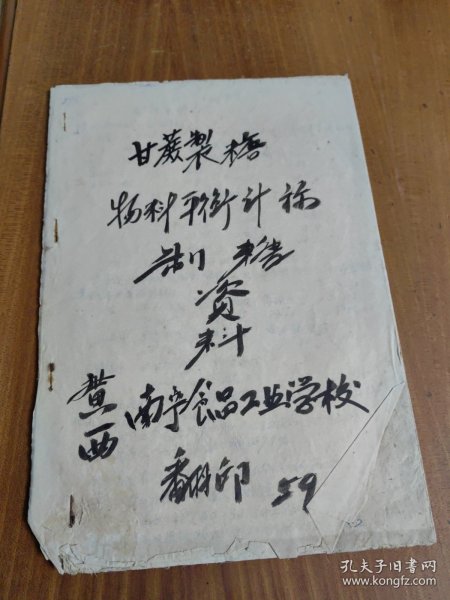 甘蔗製糖
物料平衡计称
制糖
资
料
广西南宁食品工业学校
翻印 59
孔夫子旧书网
www.kongfz.com